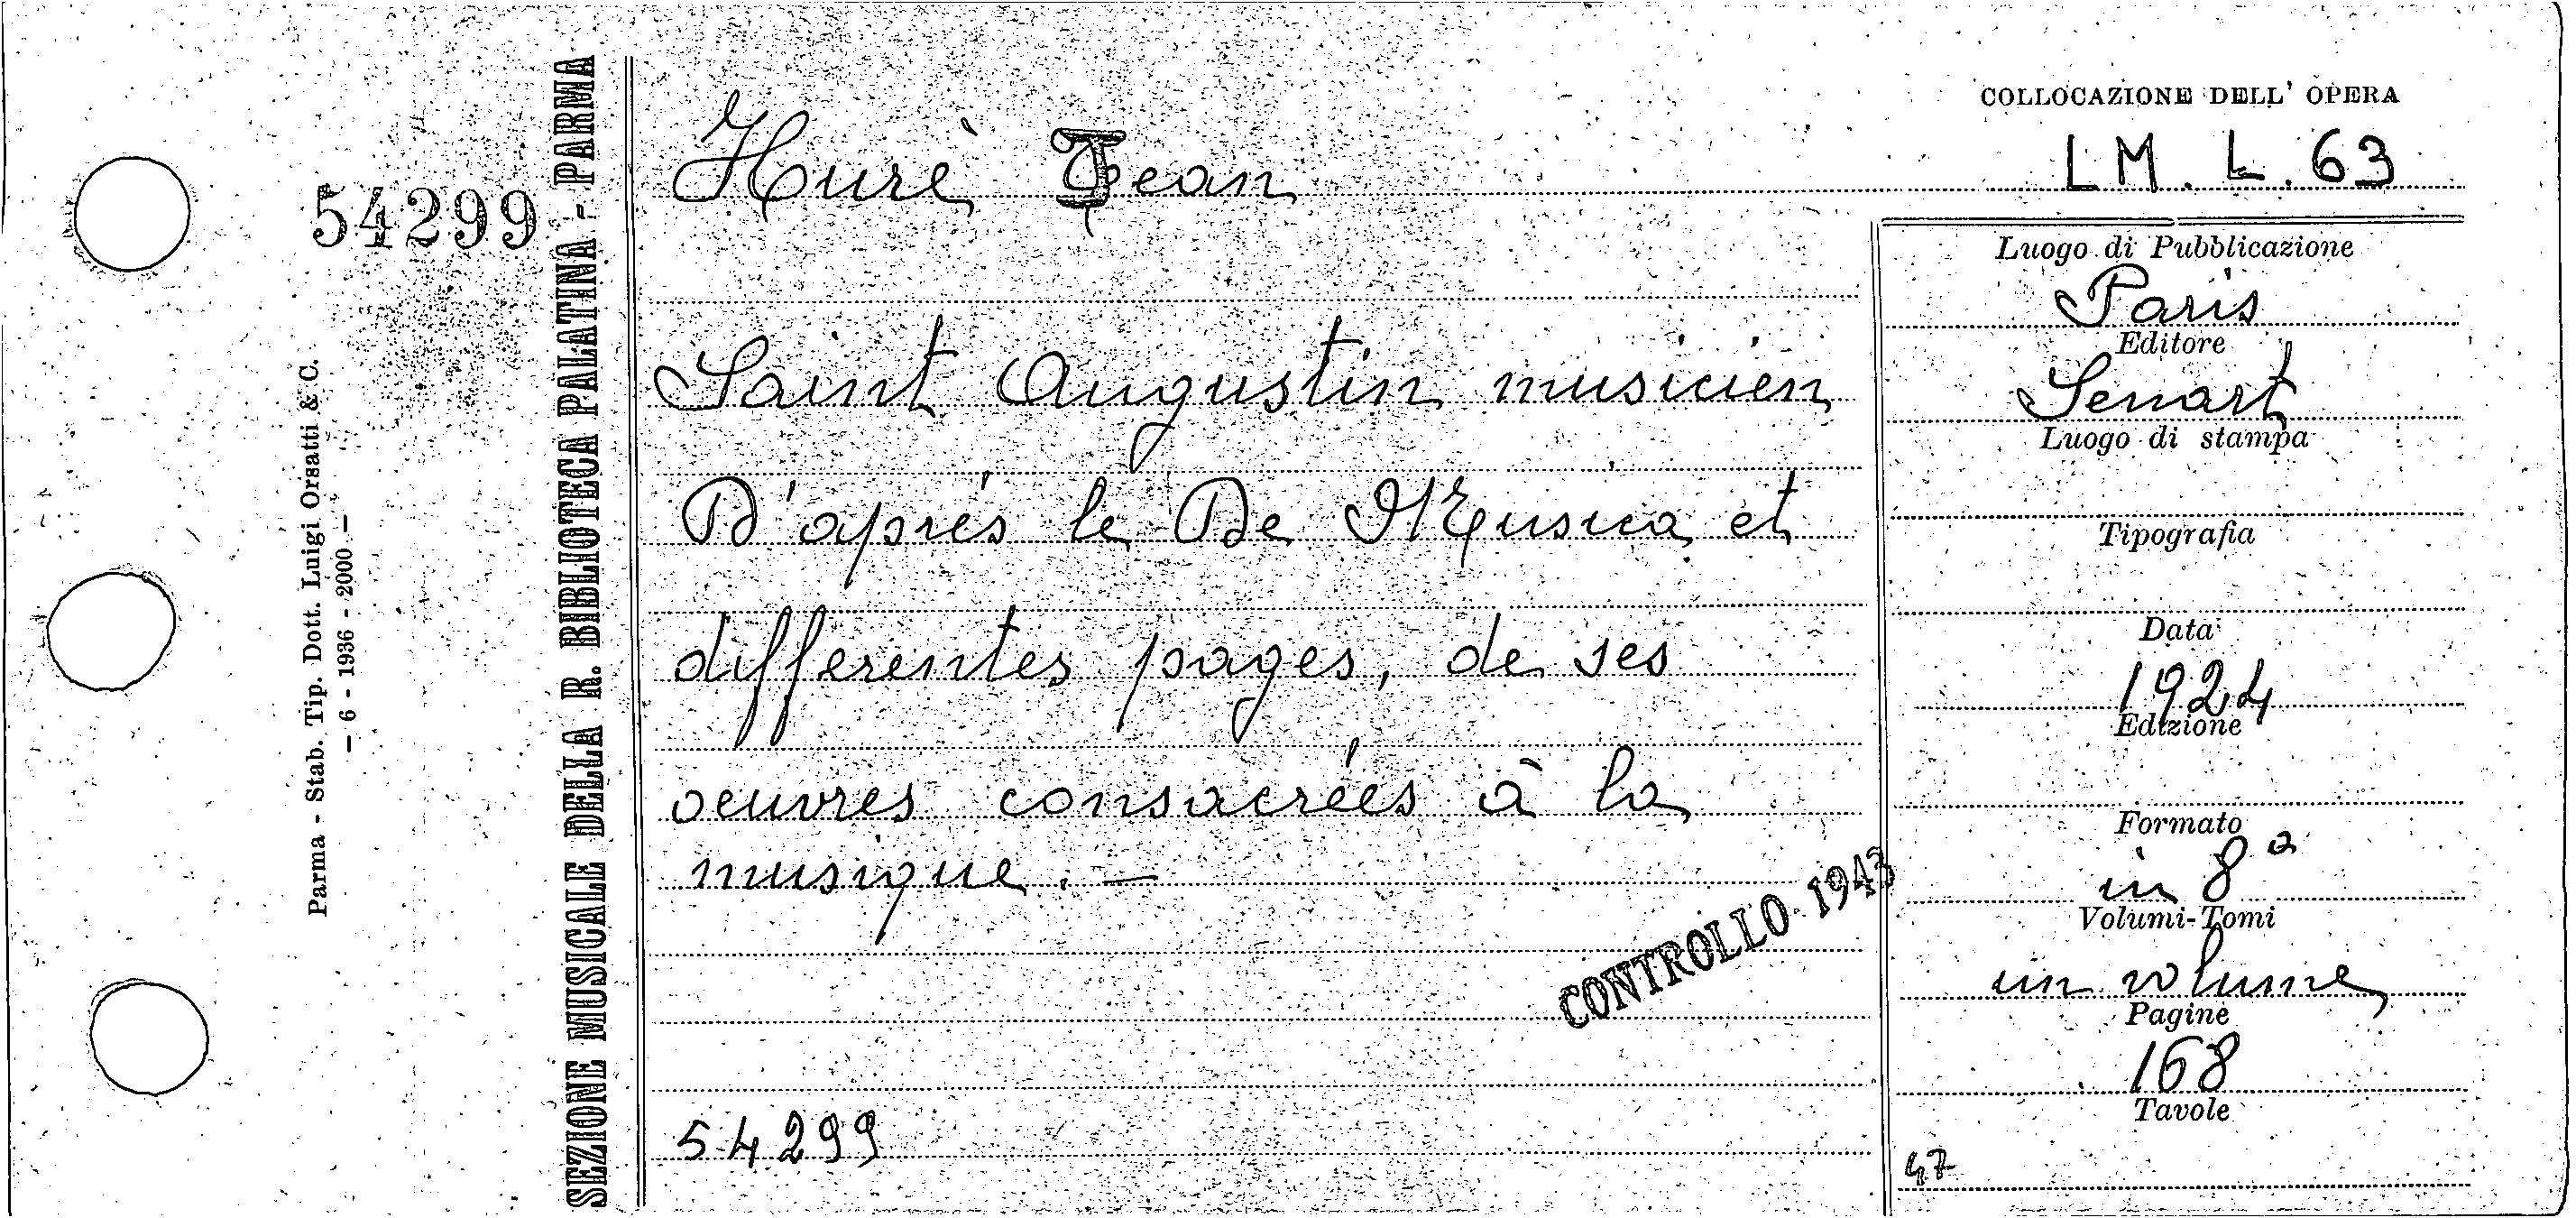 54299
Parma - Stab. Tip. Dott. Luigi Orsatti & C.
— 6 - 1936 - 2000 —
SEZIONE MUSICALE DELLA R. BIBLIOTECA PALATINA - PARMA
Hurè Jean
Saint Augustin musicien
D'aprés le De Musica et
differentes pages, de ses
oeuvres consacreés à la
musique. —
CONTROLLO 1943
54299
COLLOCAZIONE DELL' OPERA
LM. L. 63
Luogo di Pubblicazione
Paris
Editore
Senart
Luogo di stampa
Tipografia
Data
1924
Edizione
Formato
in 8°
Volumi-Tomi
un volume
Pagine
168
Tavole
47